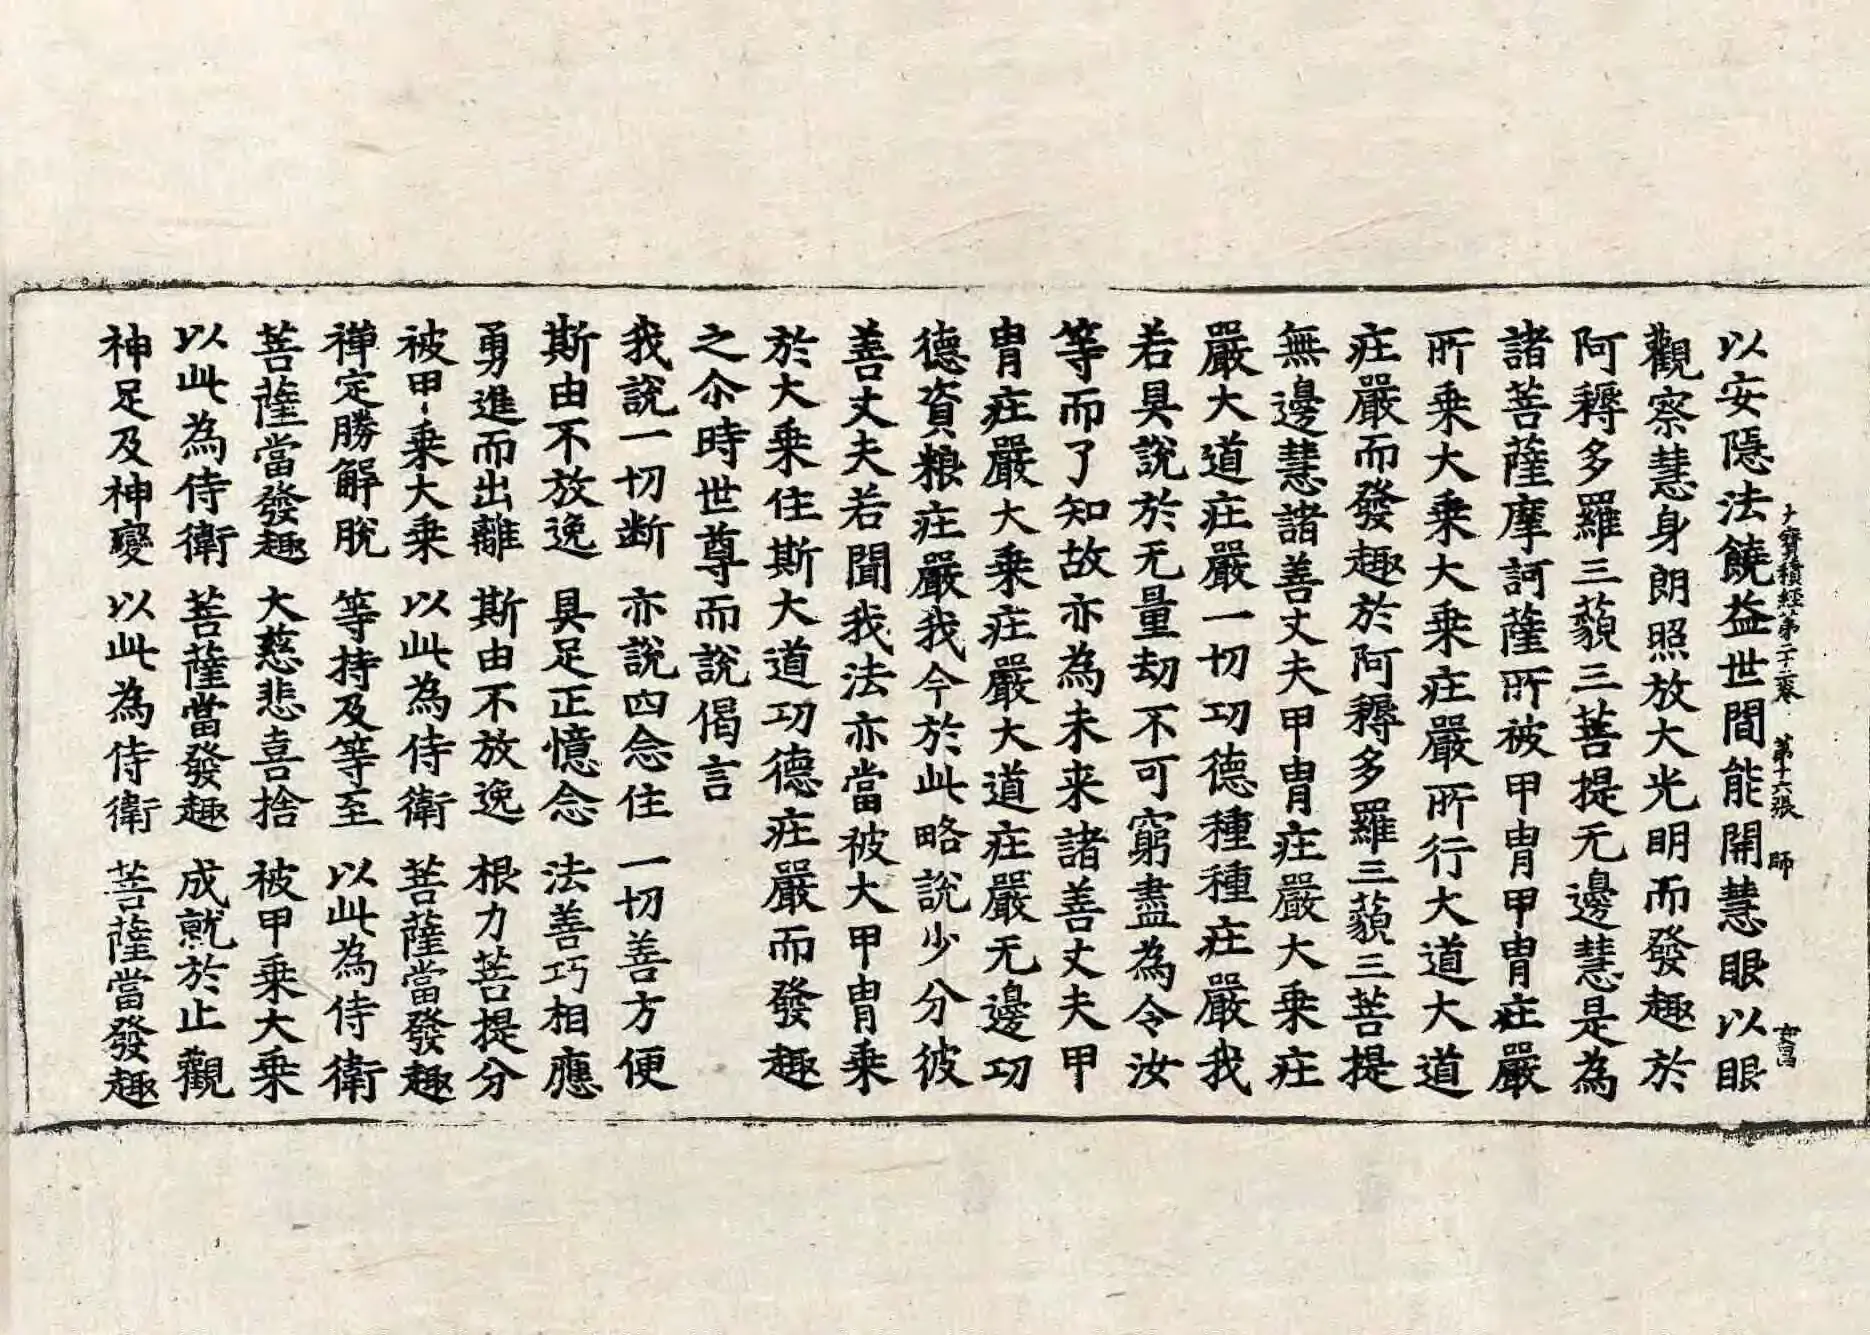 以安隱法饒益世間能開慧眼以眼
大寶積經第二十二卷 第十六張 師
觀察慧身朗照放大光明而發趣於
阿耨多羅三藐三菩提无邊慧是為
諸菩薩摩訶薩所被甲冑甲冑庄嚴
所乘大乘大乘庄嚴所行大道大道
庄嚴而發趣於阿耨多羅三藐三菩提
無邊慧諸善丈夫甲冑庄嚴大乘庄
嚴大道庄嚴一切功德種種庄嚴我
若具說於无量劫不可窮盡為令汝
等而了知故亦為未来諸善丈夫甲
冑庄嚴大乘庄嚴大道庄嚴无邊功
德資粮庄嚴我今於此略說少分彼
善丈夫若聞我法亦當被大甲冑乘
於大乘住斯大道功德庄嚴而發趣
之尒時世尊而說偈言
我說一切断 亦說四念住 一切善方便
斯由不放逸 具足正憶念 法善巧相應
勇進而出離 斯由不放逸 根力菩提分
被甲乘大乘 以此為侍衛 菩薩當發趣
禅定勝解脫 等持及等至 以此為侍衛
菩薩當發趣 大慈悲喜捨 被甲乘大乘
以此為侍衛 菩薩當發趣 成就於止觀
神足及神變 以此為侍衛 菩薩當發趣